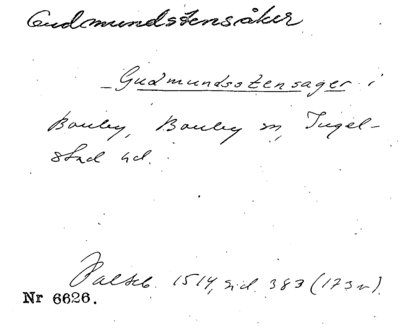 Gudmundstensåker
Gudmundsstensager i
Bouby, Bouby sn, Ingel-
stad hd.
Palteb. 1514, sid. 383 (173 v).
Nr 6626.